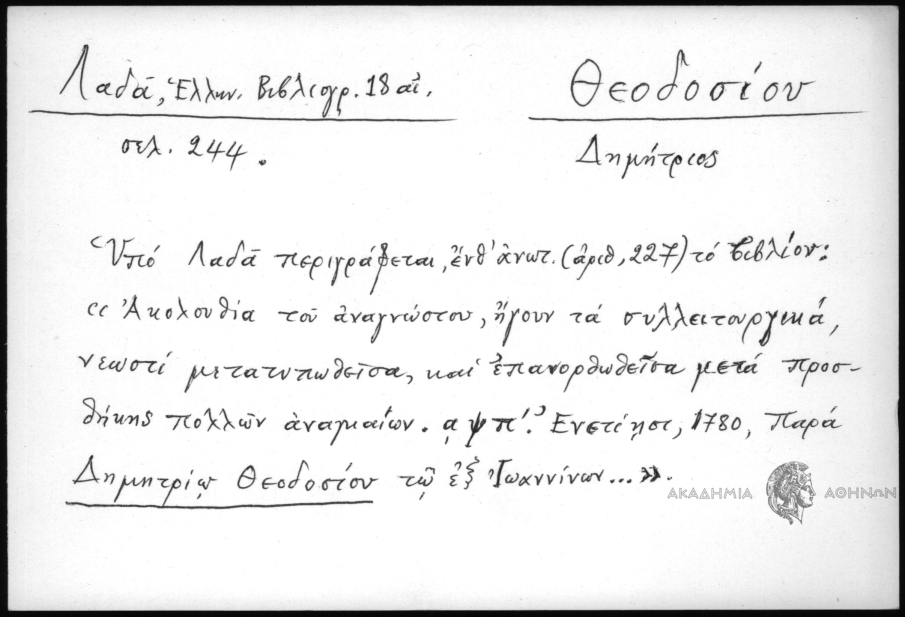 Λαδᾶ, Ἑλλην. Βιβλιογρ. 18 αἰ.
Θεοδοσίου
σελ. 244.
Δημήτριος
Ὑπό Λαδᾶ περιγράφεται, ἔνθ' ἀνωτ. (ἀριθ, 227) τό βιβλίον:
«Ἀκολουθία τοῦ ἀναγνώστου, ἤγουν τά συλλειτουργικά,
νεωστί μετατυπωθεῖσα, καί ἐπανορθωθεῖσα μετά προσ-
θήκης πολλῶν ἀναγκαίων. ͵αψπ'. Ἐνετίησι, 1780, Παρά
Δημητρίῳ Θεοδοσίου τῷ ἐξ Ἰωαννίνων...».
ΑΚΑΔΗΜΙΑ ΑΘΗΝΩΝ